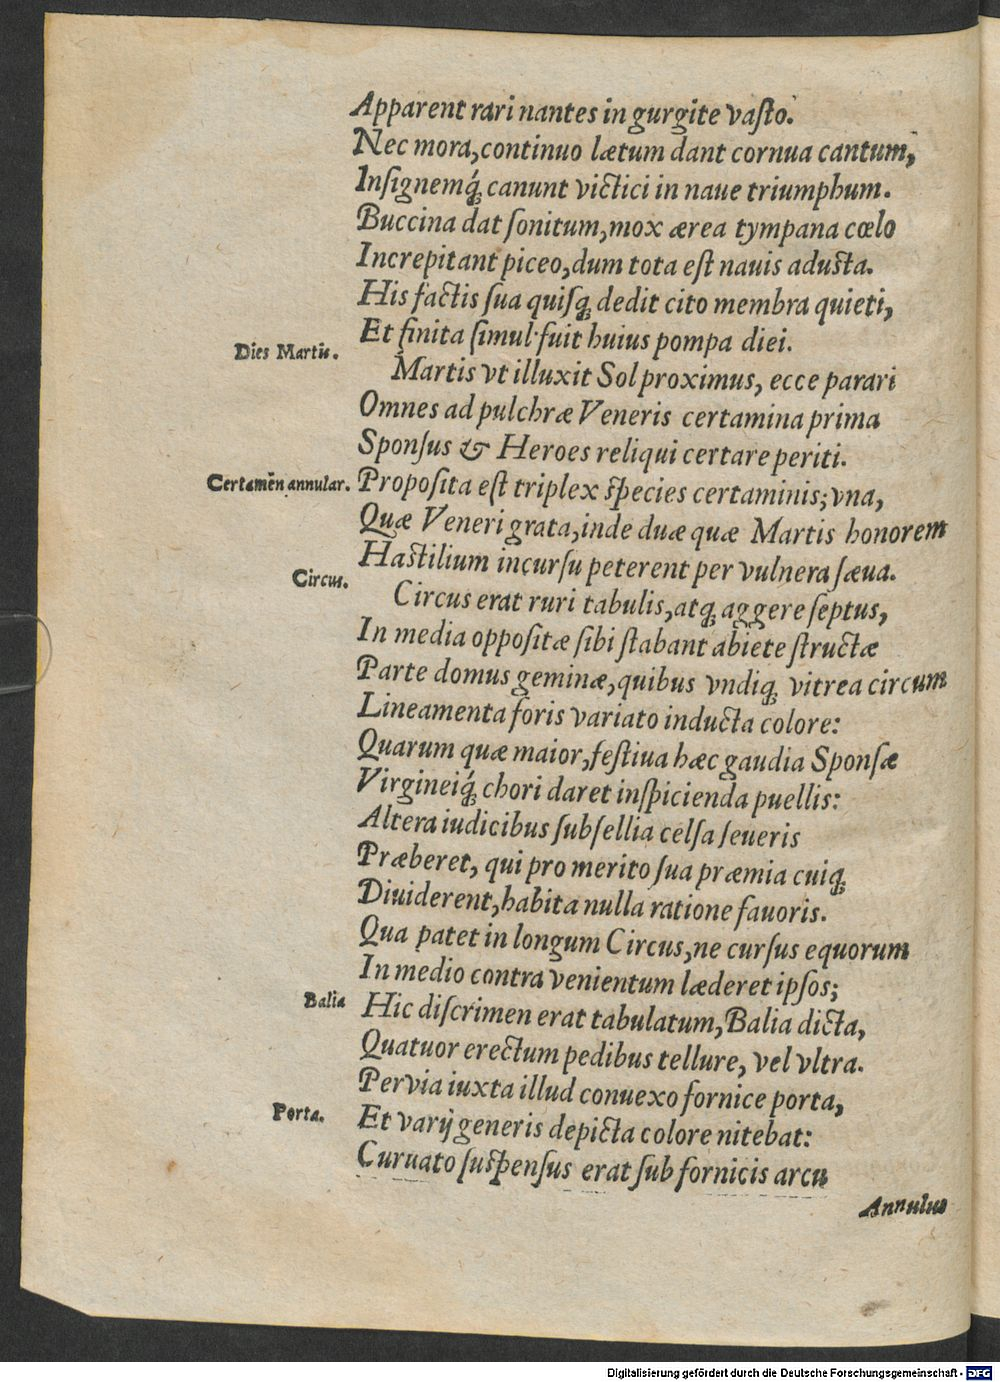 Apparent rari nantes in gurgite vaſto.
Nec mora, continuo lætum dant cornua cantum,
Inſignemq́; canunt victici in naue triumphum.
Buccina dat ſonitum, mox ærea tympana cœlo
Increpitant piceo, dum tota eſt nauis aduſta.
His factis ſua quiſq; dedit cito membra quieti,
Et finita ſimul fuit huius pompa diei.
Dies Martis.
Martis vt illuxit Sol proximus, ecce parari
Omnes ad pulchræ Veneris certamina prima
Sponſus & Heroes reliqui certare periti.
Certamēn annular.
Propoſita eſt triplex ſpecies certaminis; vna,
Quæ Veneri grata, inde duæ quæ Martis honorem
Haſtilium incurſu peterent per vulnera ſæua.
Circus.
Circus erat ruri tabulis, atq; aggere ſeptus,
In media oppoſitæ ſibi ſtabant abiete ſtructæ
Parte domus geminæ, quibus vndiq; vitrea circum
Lineamenta foris variato inducta colore:
Quarum quæ maior, feſtiua hæc gaudia Sponſæ
Virgineiq́; chori daret inſpicienda puellis:
Altera iudicibus ſubſellia celſa ſeueris
Præberet, qui pro merito ſua præmia cuiq;
Diuiderent, habita nulla ratione fauoris.
Qua patet in longum Circus, ne curſus equorum
In medio contra venientum læderet ipſos;
Balia
Hic diſcrimen erat tabulatum, Balia dicta,
Quatuor erectum pedibus tellure, vel vltra.
Pervia iuxta illud conuexo fornice porta,
Porta.
Et varij generis depicta colore nitebat:
Curuato ſuſpenſus erat ſub fornicis arcu
Annulus
Digitalisierung gefördert durch die Deutsche Forschungsgemeinschaft - DFG